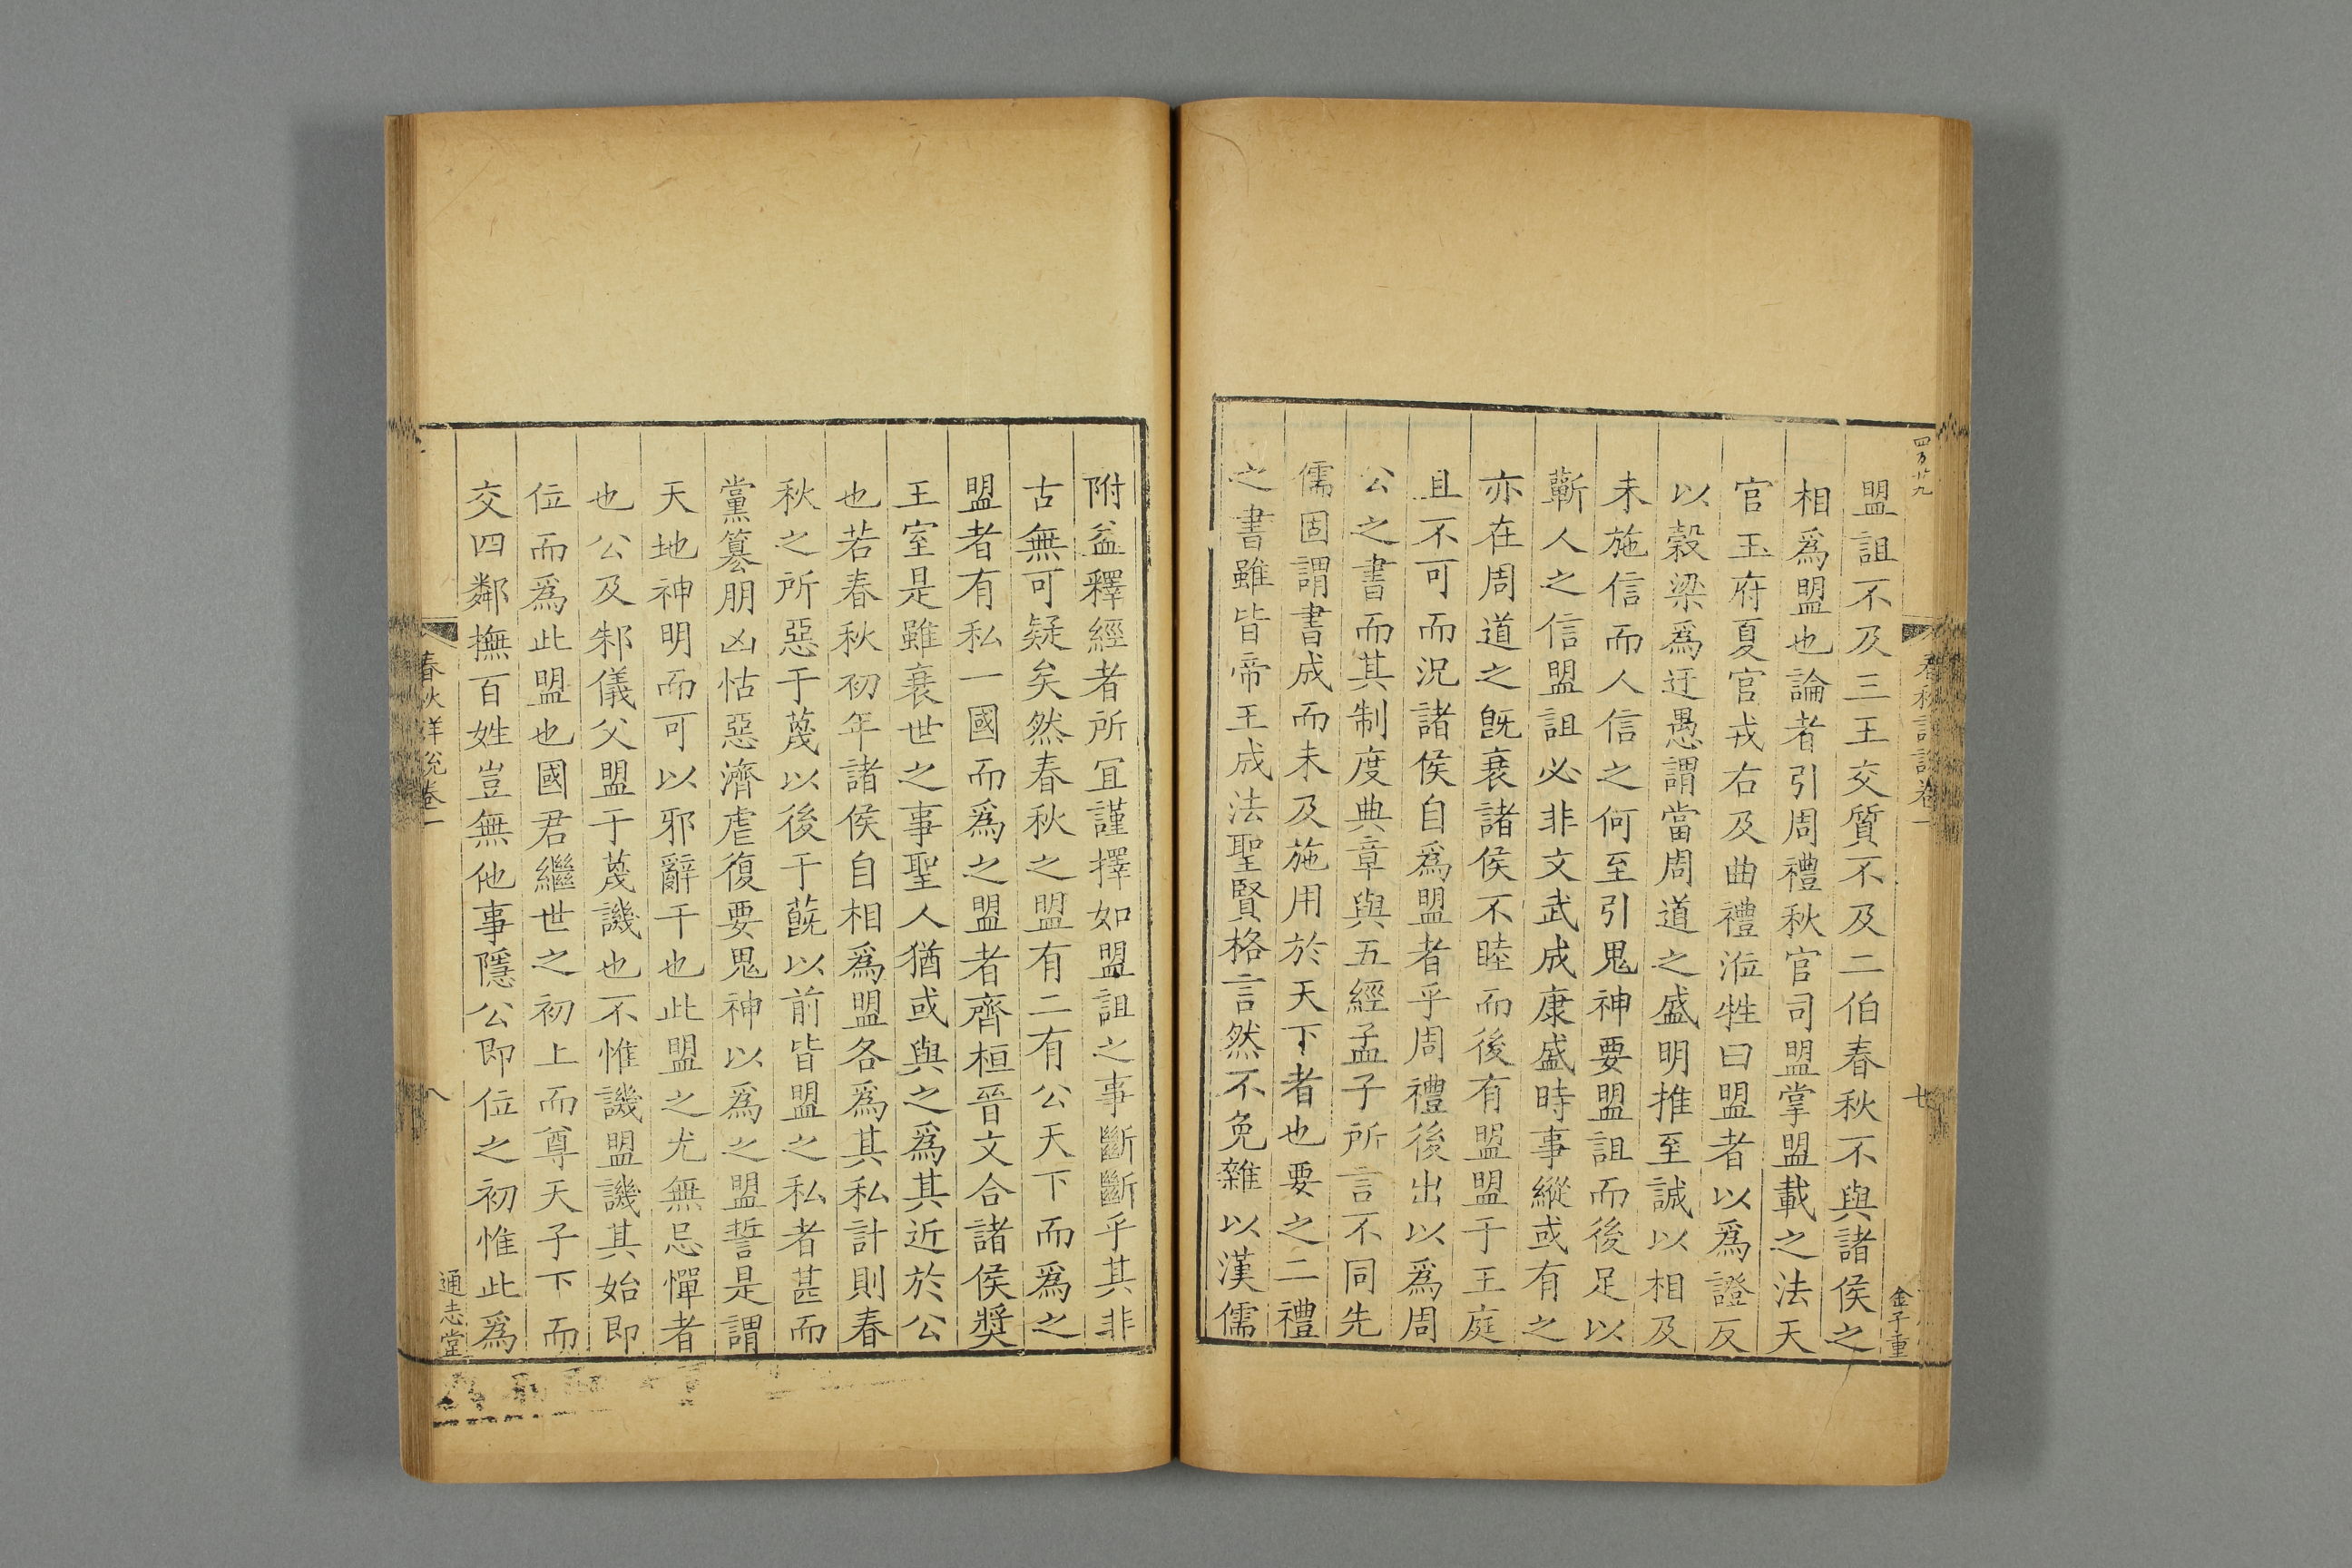 四百廿九
春秋詳說卷一
七
金子重
盟詛不及三王交質不及二伯春秋不與諸侯之
相爲盟也論者引周禮秋官司盟掌盟載之法天
官玉府夏官戎右及曲禮涖牲曰盟者以爲證反
以榖梁爲迂愚謂當周道之盛明推至誠以相及
未施信而人信之何至引鬼神要盟詛而後足以
蘄人之信盟詛必非文武成康盛時事縱或有之
亦在周道之旣衰諸侯不睦而後有盟盟于王庭
且不可而況諸侯自爲盟者乎周禮後出以爲周
公之書而其制度典章與五經孟子所言不同先
儒固謂書成而未及施用於天下者也要之二禮
之書雖皆帝王成法聖賢格言然不免雜以漢儒
附益釋經者所宜謹擇如盟詛之事斷斷乎其非
古無可疑矣然春秋之盟有二有公天下而爲之
盟者有私一國而爲之盟者齊桓晉文合諸侯獎
王室是雖衰世之事聖人猶或與之爲其近於公
也若春秋初年諸侯自相爲盟各爲其私計則春
秋之所惡于蔑以後于蔇以前皆盟之私者甚而
黨簒朋凶怙惡濟虐復要鬼神以爲之盟誓是謂
天地神明而可以邪辭干也此盟之尤無忌憚者
也公及邾儀父盟于蔑譏也不惟譏盟譏其始即
位而爲此盟也國君繼世之初上而尊天子下而
交四鄰撫百姓豈無他事隱公即位之初惟此爲
春秋詳說卷一
八
通志堂